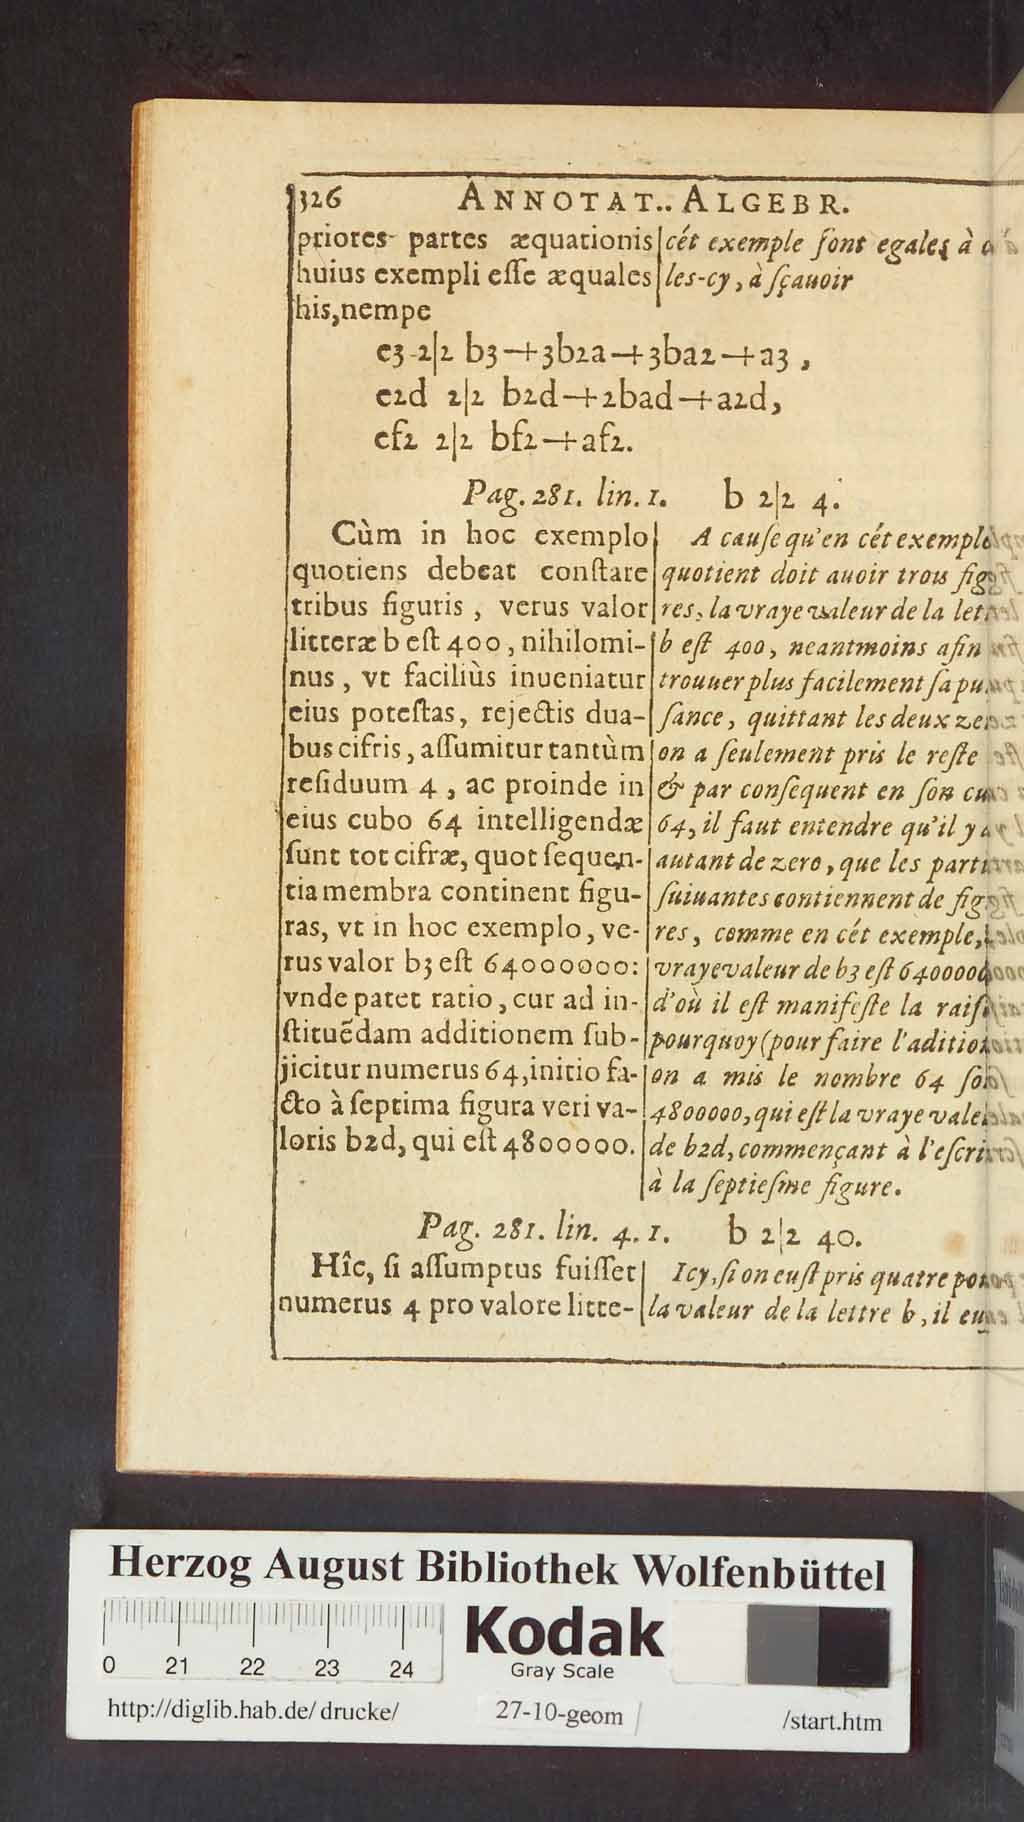 326 ANNOTAT.. ALGEBR.
priores partes æquationis
huius exempli eſſe æquales
his, nempe
cét exemple ſont egales à
les-cy, à ſçauoir
e3 2|2 b3 + 3b2a + 3ba2 + a3,
e2d 2|2 b2d + 2bad + a2d,
ef2 2|2 bf2 + af2.
Pag. 281. lin. 1. b 2|2 4.
Cùm in hoc exemplo
quotiens debeat conſtare
tribus figuris, verus valor
litteræ b eſt 400, nihilomi-
nus, vt faciliùs inueniatur
eius poteſtas, rejectis dua-
bus cifris, aſſumitur tantùm
reſiduum 4, ac proinde in
eius cubo 64 intelligendæ
ſunt tot cifræ, quot ſequen-
tia membra continent figu-
ras, vt in hoc exemplo, ve-
rus valor b3 eſt 64000000:
vnde patet ratio, cur ad in-
ſtituẽdam additionem ſub-
jicitur numerus 64, initio fa-
cto à ſeptima figura veri va-
loris b2d, qui eſt 4800000.
A cauſe qu'en cét exemple
quotient doit auoir trois fig
res, la vraye valeur de la let
b eſt 400, neantmoins afin
trouuer plus facilement ſa pu
ſance, quittant les deux ze
on a ſeulement pris le reſte
& par conſequent en ſon cu
64, il faut entendre qu'il y a
autant de zero, que les parti
ſuiuantes contiennent de fig
res, comme en cét exemple,
vraye valeur de b3 eſt 640000
d'où il eſt manifeſte la raiſ
pourquoy (pour faire l'aditio
on a mis le nombre 64 ſo
4800000, qui eſt la vraye vale
de b2d, commençant à l'eſcri
à la ſeptieſme figure.
Pag. 281. lin. 4. 1. b 2|2 40.
Hîc, ſi aſſumptus fuiſſet
numerus 4 pro valore litte-
Icy, ſi on euſt pris quatre po
la valeur de la lettre b, il eu
Herzog August Bibliothek Wolfenbüttel
0 21 22 23 24
Kodak
Gray Scale
http://diglib.hab.de/drucke/ 27-10-geom /start.htm